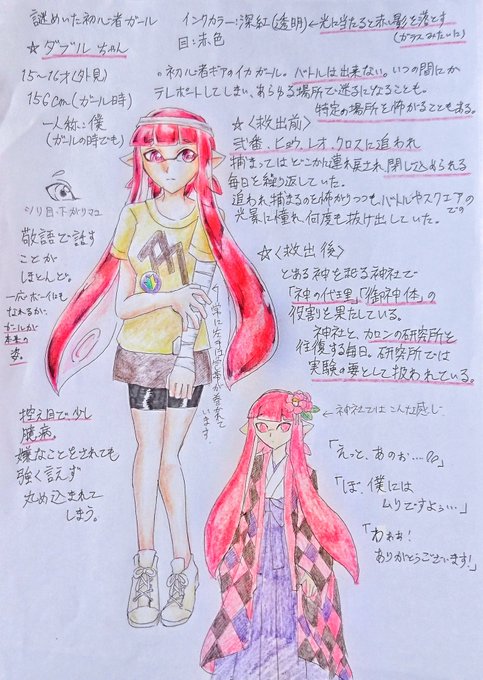 謎めいた初心者ガール
インクカラー:深紅(透明)←光に当たると赤い影を落とす
(ガラスみたいに)
☆ダブルちゃん
目:赤色
15〜16才(外見)
156cm(ガール時)
一人称:僕
(ガールの時でも)
ジリ目・下がりマユ
敬語で話す
ことが
ほとんど。
一応ボーイにも
なれるが、
ガールが
本来の
姿。
控え目で少し
臆病。
嫌なことをされても
強く言えず
丸め込まれて
しまう。
初心者ギアのイカガール。バトルは出来ない。いつの間にか
テレポートしてしまい、あらゆる場所で迷子になることも。
特定の場所を怖がることもある。
☆<救出前>
弐番、ヒョウ、レオ、クロスに追われ
捕まってはどこかに連れ戻され、閉じ込められる
毎日を繰り返していた。
追われ、捕まるのを怖がりつつも、バトルやスクエアでの
光景に憧れ、何度も抜け出していた。
☆<救出後>
とある神を祀る神社で
「神の代理」「御神体」の
役割を果たしている。
神社と、カロンの研究所を
往復する毎日。研究所では
実験の要として扱われている。
←神社ではこんな感じ
「えっと、あのぉ…」
「ぼ、僕には
ムリですよぅ…」
「わぁぁ!
ありがとうございます!」